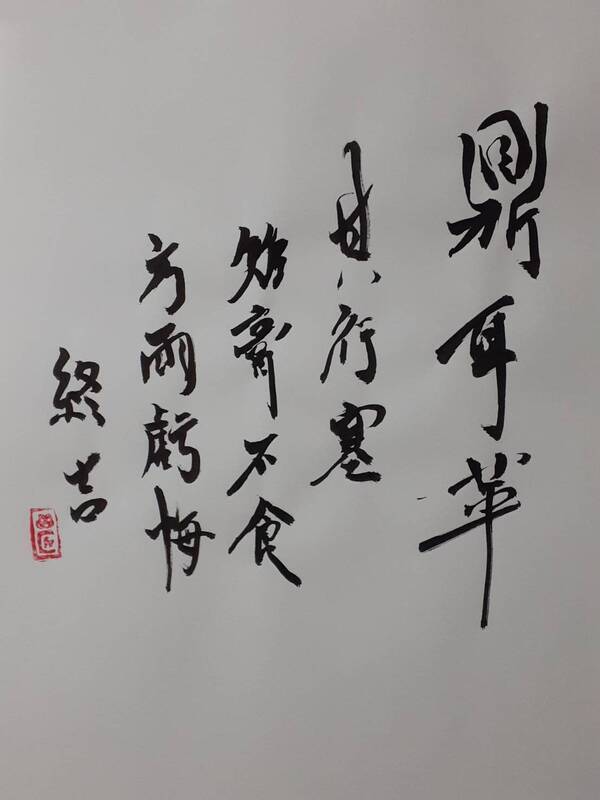 鼎耳革
其行塞
雉膏不食
方雨虧悔
終吉